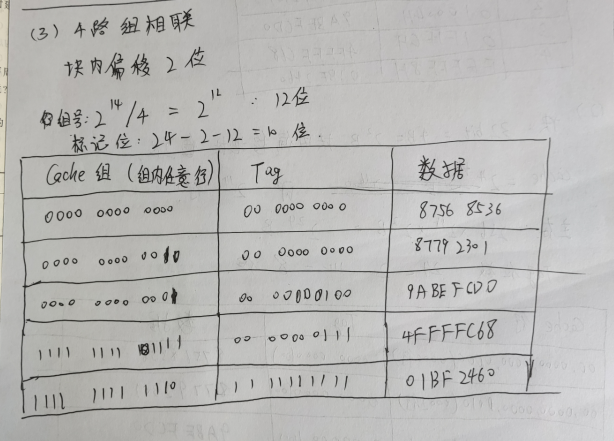 (3) 4路组相联
块内偏移 2 位
组号: 2^14/4 = 2^12 ∴ 12位
标记位: 24-2-12=10 位.
Cache 组 (组内任意行) Tag 数据
0000 0000 0000 00 0000 0000 8756 8536
0000 0000 0010 00 0000 0000 8779 2301
0000 0000 0001 00 00000100 9ABE FCD0
1111 1111 1111 00 0000 0111 4FFFFC68
1111 1111 1110 11 11111111 01BF 2460